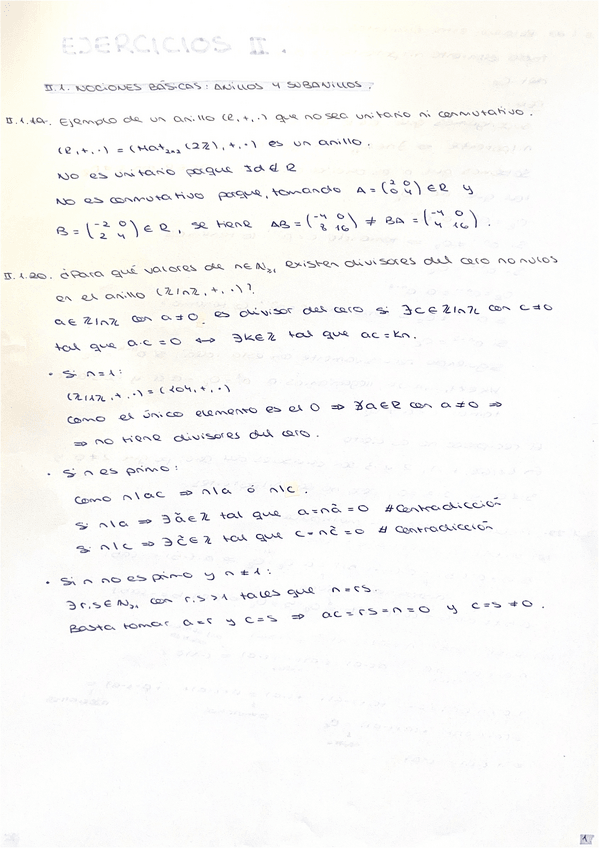 EJERCICIOS II.
II.1. NOCIONES BÁSICAS: ANILLOS Y SUBANILLOS.
II.1.19. Ejemplo de un anillo (R,+,·) que no sea unitario ni conmutativo.
(R,+,·) = (Mat₂ₓ₂(2ℤ),+,·) es un anillo.
No es unitario porque Id ∉ R
No es conmutativo porque, tomando A = (2 0 / 0 4) ∈ R y
B = (-2 0 / 2 4) ∈ R, se tiene AB = (-4 0 / 8 16) ≠ BA = (-4 0 / 4 16).
II.1.20. ¿Para qué valores de n∈ℕ≥₁ existen divisores del cero no nulos
en el anillo (ℤ/nℤ,+,·)?
a∈ℤ/nℤ con a≠0 es divisor del cero si ∃c∈ℤ/nℤ con c≠0
tal que a·c=0 ⟷ ∃k∈ℤ tal que ac=kn.
· Si n=1:
(ℤ/1ℤ,+,·) = ({0},+,·)
Como el único elemento es el 0 ⇒ ∄a∈R con a≠0 ⇒
⇒ no tiene divisores del cero.
· Si n es primo:
Como n|ac ⇒ n|a ó n|c.
Si n|a ⇒ ∃ã∈ℤ tal que a=nã=0 #Contradicción
Si n|c ⇒ ∃c̃∈ℤ tal que c=nc̃=0 # Contradicción
· Si n no es primo y n≠1:
∃r,s∈ℕ≥₁ con r,s>1 tales que n=rs.
Basta tomar a=r y c=s ⇒ ac=rs=n=0 y c=s≠0.